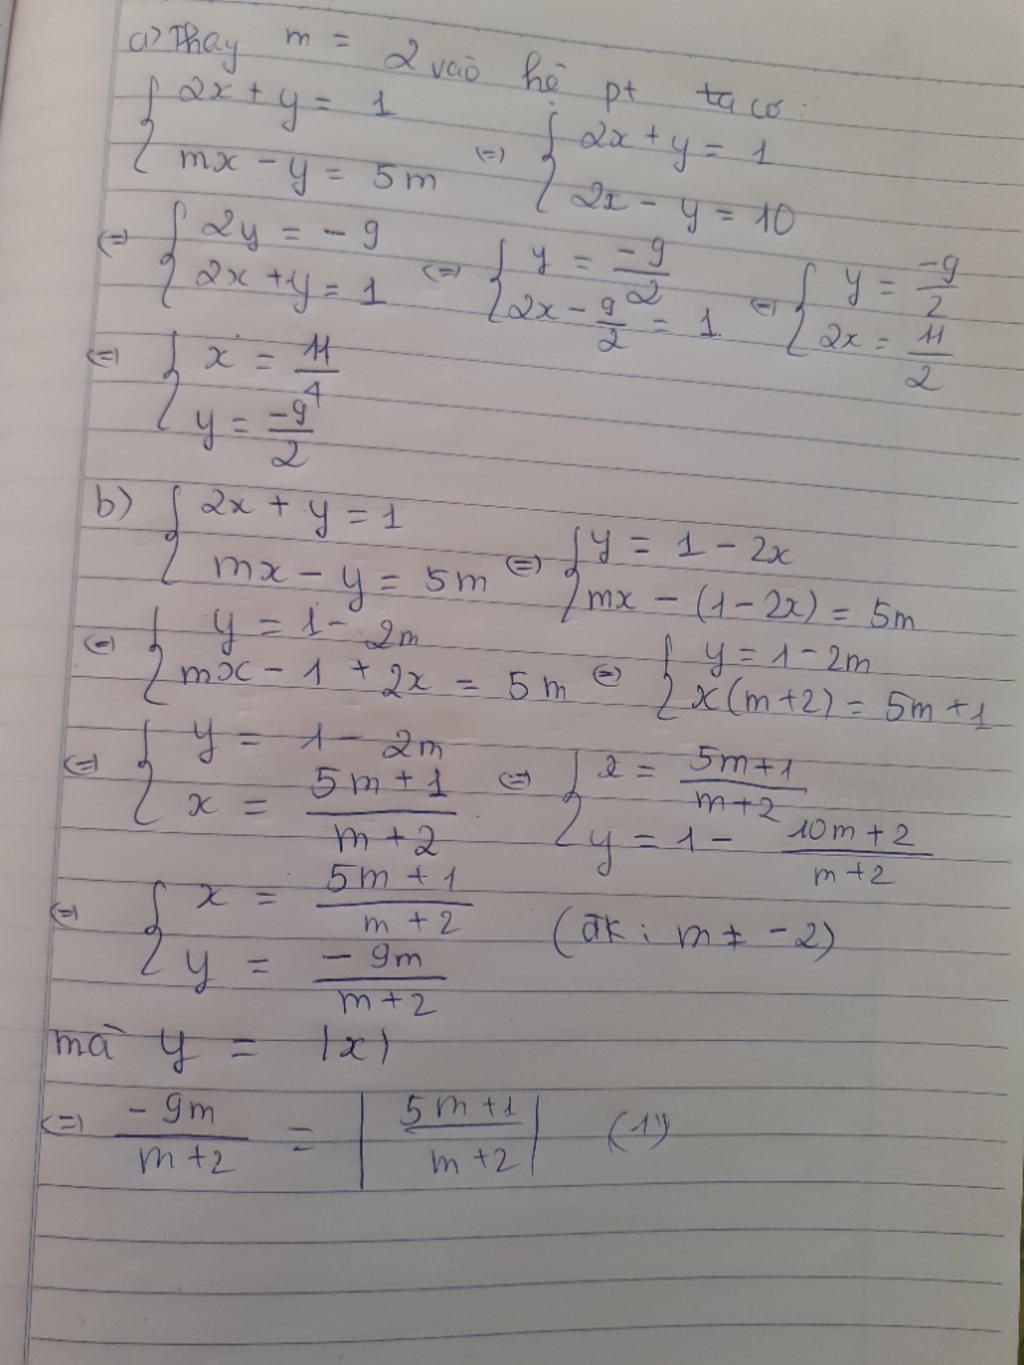 a) Thay m = 2 vào hệ pt ta có:
{ 2x + y = 1
{ mx - y = 5m
(=) { 2x + y = 1
{ 2x - y = 10
(=) { 2y = -9
{ 2x + y = 1
(=) { y = -9/2
{ 2x - 9/2 = 1
(=) { y = -9/2
{ 2x = 11/2
(=) { x = 11/4
{ y = -9/2
b) { 2x + y = 1
{ mx - y = 5m
(=) { y = 1 - 2x
{ mx - (1 - 2x) = 5m
(=) { y = 1 - 2m
{ mx - 1 + 2x = 5m
(=) { y = 1 - 2m
{ x(m+2) = 5m + 1
(=) { y = 1 - 2m
{ x = 5m + 1 / m + 2
(=) { x = 5m+1 / m+2
{ y = 1 - 10m + 2 / m+2
(=) { x = 5m + 1 / m + 2
{ y = -9m / m+2
(ĐK: m ≠ -2)
mà y = |x|
(=) -9m / m+2 = | 5m+1 / m+2 | (1)